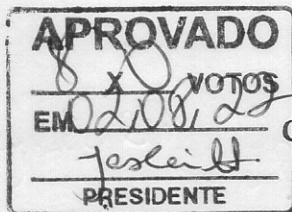 APROVADO
8 X 0 VOTOS
EM 02,08,22
PRESIDENTE